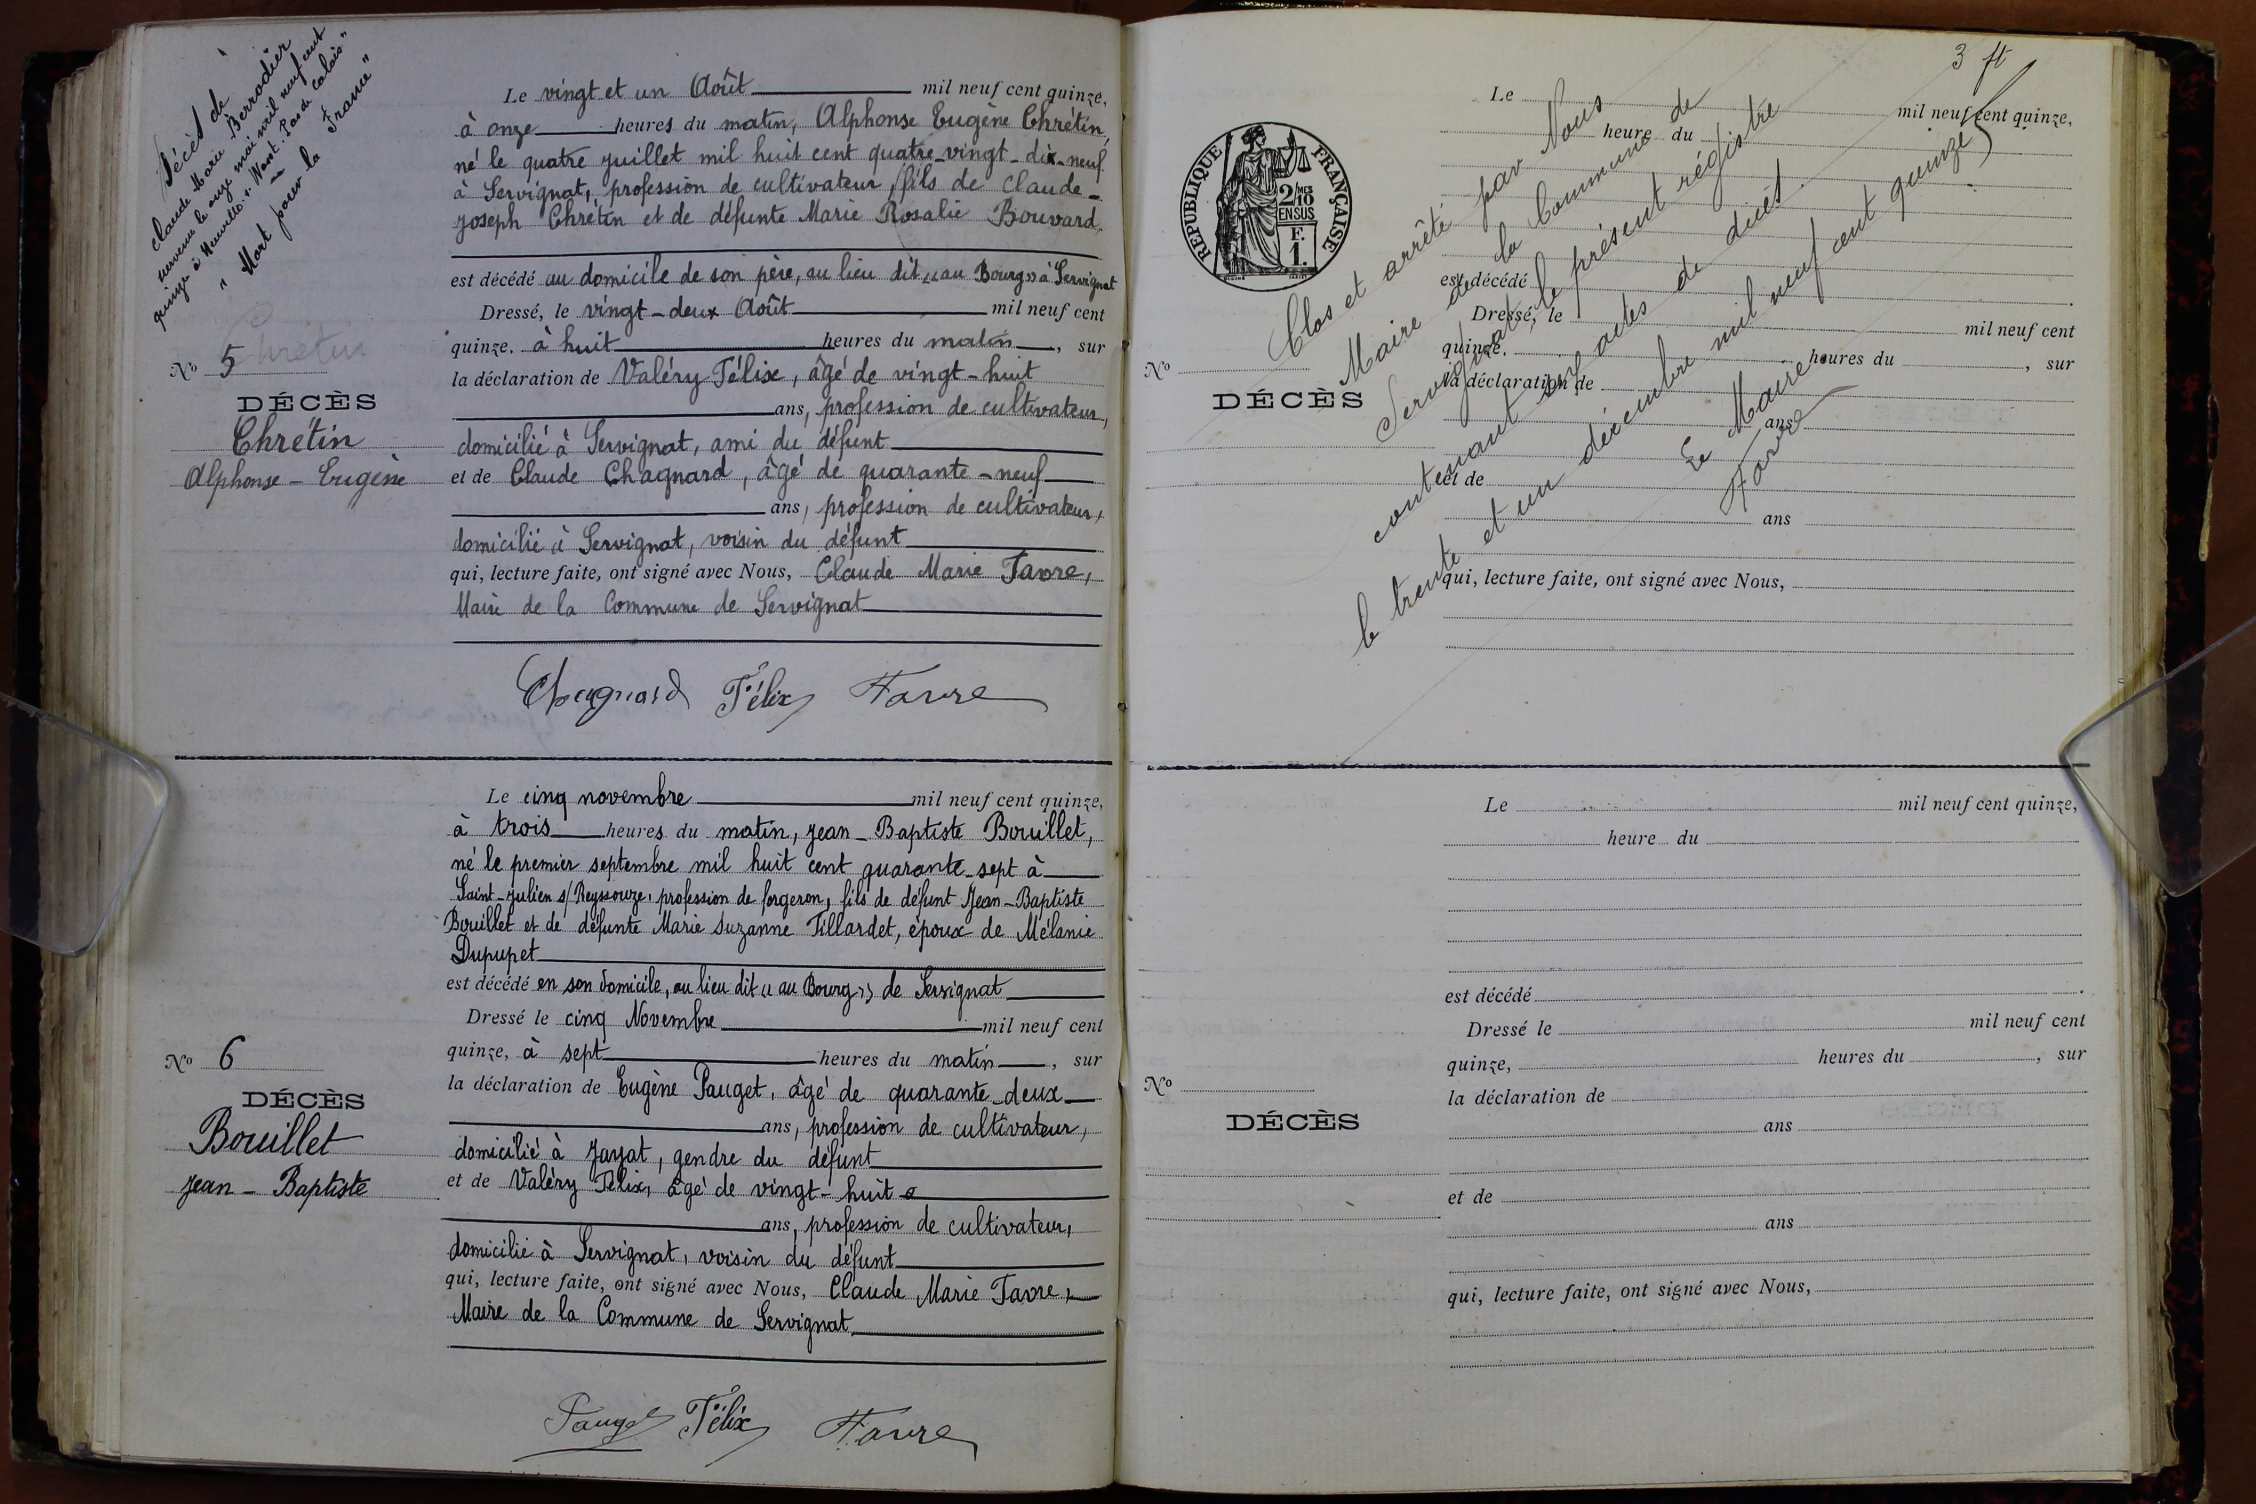 Décès de
Claude Marie Berrodier
survenu le onze mai mil neuf cent
quinze à Neuville-St-Waast. Pas de Calais"
"Mort pour la France"
Chrétin
Nº 5
DÉCÈS
Chrétin
Alphonse - Eugène
Le vingt et un Août mil neuf cent quinze,
à onze heures du matin, Alphonse Eugène Chrétin,
né le quatre juillet mil huit cent quatre-vingt-dix-neuf
à Servignat, profession de cultivateur, fils de Claude-
Joseph Chrétin et de défunte Marie Rosalie Bouvard,
est décédé au domicile de son père, au lieu dit « au Bourg » à Servignat
Dressé, le vingt-deux Août mil neuf cent
quinze. à huit heures du matin, sur
la déclaration de Valéry Félix, âgé de vingt-huit
ans, profession de cultivateur,
domicilié à Servignat, ami du défunt
et de Claude Chagnard, âgé de quarante-neuf
ans, profession de cultivateur,
domicilié à Servignat, voisin du défunt
qui, lecture faite, ont signé avec Nous, Claude Marie Favre,
Maire de la Commune de Servignat
Chagnard Félix Favre
Nº 6
DÉCÈS
Bouillet
Jean - Baptiste
Le cinq novembre mil neuf cent quinze,
à trois heures du matin, Jean-Baptiste Bouillet,
né le premier septembre mil huit cent quarante-sept à
Saint-Julien s/Reyssouze, profession de forgeron, fils de défunt Jean-Baptiste
Bouillet et de défunte Marie Suzanne Tillardet, époux de Mélanie
Dupupet
est décédé en son domicile, au lieu dit « au Bourg » de Servignat
Dressé le cinq Novembre mil neuf cent
quinze, à sept heures du matin, sur
la déclaration de Eugène Pauget, âgé de quarante-deux
ans, profession de cultivateur,
domicilié à Jayat, gendre du défunt
et de Valéry Félix, âgé de vingt-huit
ans, profession de cultivateur,
domicilié à Servignat, voisin du défunt
qui, lecture faite, ont signé avec Nous, Claude Marie Favre,
Maire de la Commune de Servignat
Pauget Félix Favre
3 ft
RÉPUBLIQUE FRANÇAISE
2/10
MES
EN SUS
F.
1.
Clos et arrêté par Nous
Maire de la Commune de
Servignat le présent régistre
contenant six actes de décès
le trente et un décembre mil neuf cent quinze
Le Maire
Favre
Le mil neuf cent quinze,
heure du
est décédé
Dressé, le mil neuf cent
quinze. heures du , sur
la déclaration de
ans
et de
ans
qui, lecture faite, ont signé avec Nous,
Nº
DÉCÈS
Le mil neuf cent quinze,
heure du
est décédé
Dressé le mil neuf cent
quinze, heures du , sur
la déclaration de
ans
et de
ans
qui, lecture faite, ont signé avec Nous,
Nº
DÉCÈS